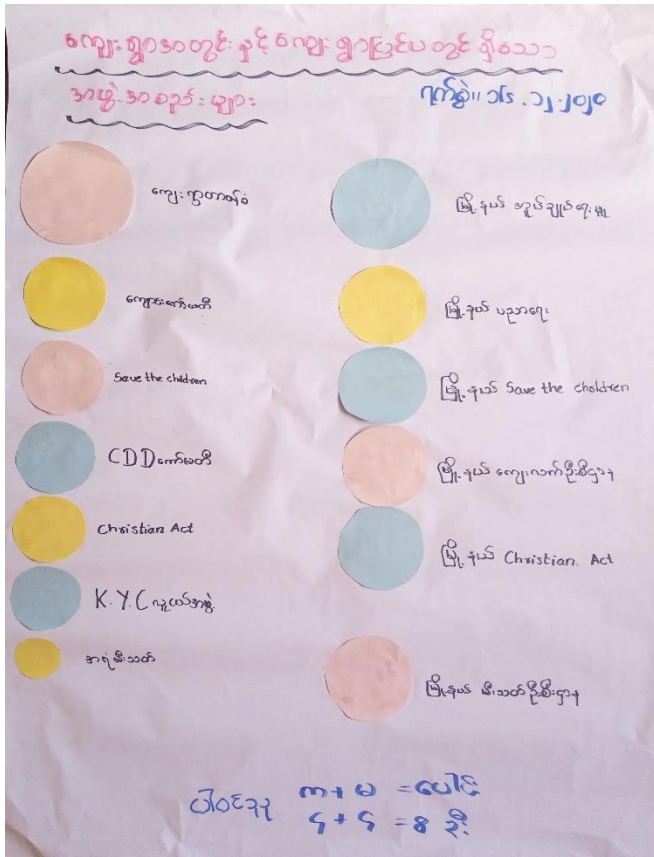 ကျေးရွာအတွင်းနှင့်ကျေးရွာပြင်ပတွင်ရှိသော
အဖွဲ့အစည်းများ
ရက်စွဲ။ ၁၆.၁၂.၂၀၂၀
ကျေးရွာတာဝန်ခံ
ကျောင်းကော်မတီ
Save the children
CDD ကော်မတီ
Christian Act
K.Y.C လူငယ်အဖွဲ့
အရံမီးသတ်
မြို့နယ် အုပ်ချုပ်ရေးမှူး
မြို့နယ် ပညာရေး
မြို့နယ် Save the choldren
မြို့နယ် ကျေးလက်ဦးစီးဌာန
မြို့နယ် Christian. Act
မြို့နယ် မီးသတ်ဦးစီးဌာန
ပါဝင်သူ ကျ + မ = ပေါင်း
၄ + ၄ = 8 ဦး